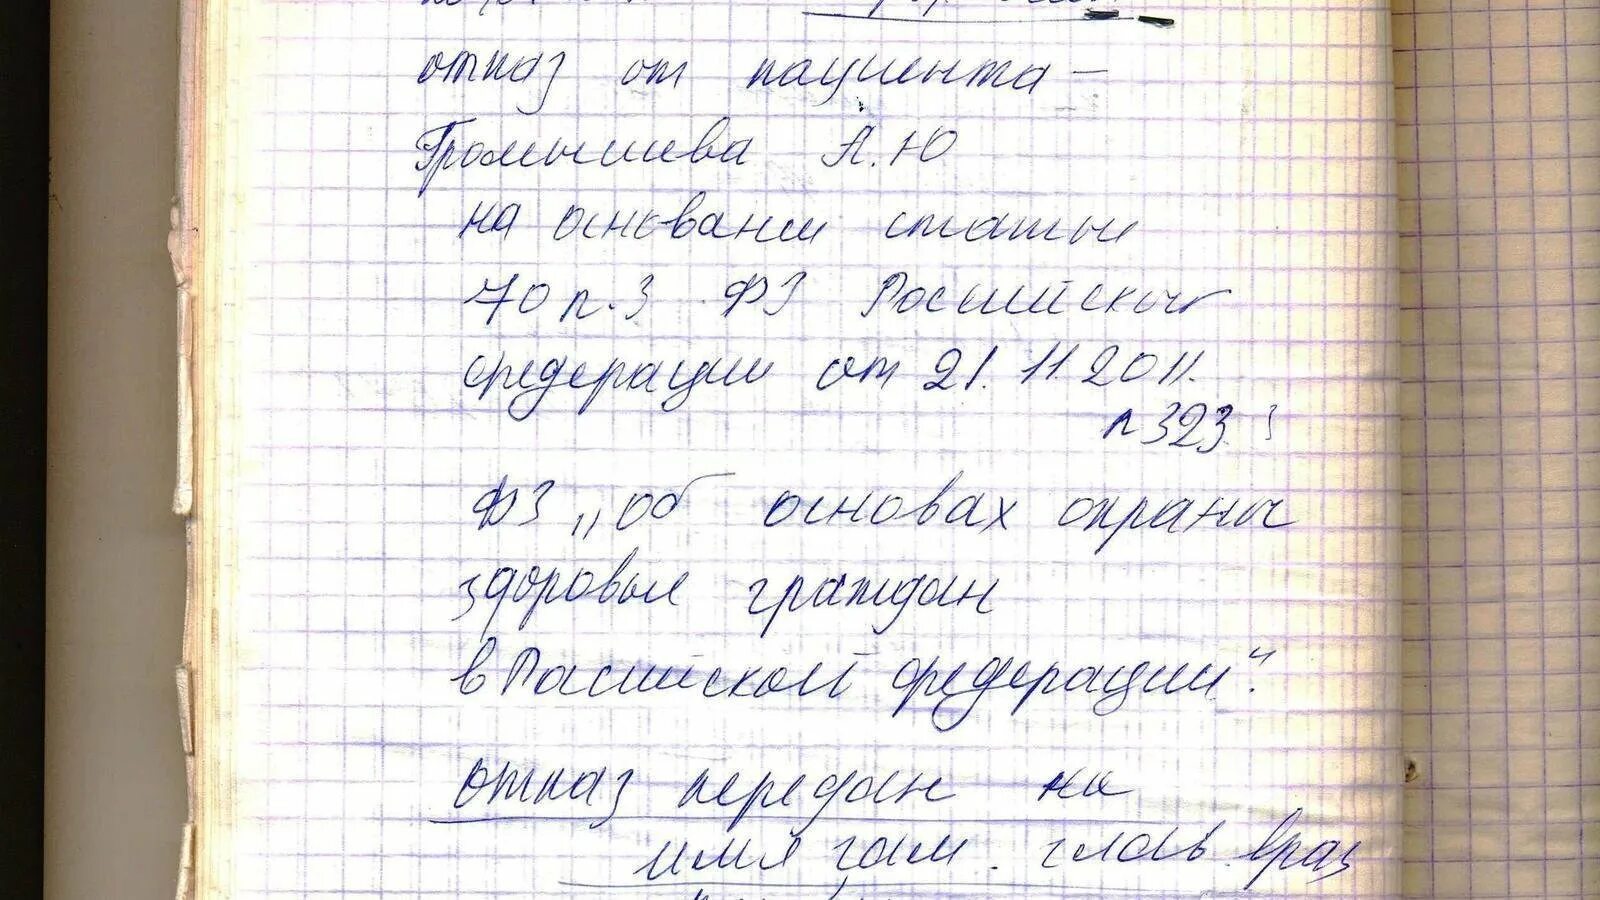 отказ от пациента –
Громышева А.Ю
на основании статьи
70 п. 3 ФЗ Российской
федерации от 21.11.2011.
п 323
ФЗ „Об основах охраны
здоровья граждан
в Российской федерации".
отказ передан на
имя зам. глав. врач